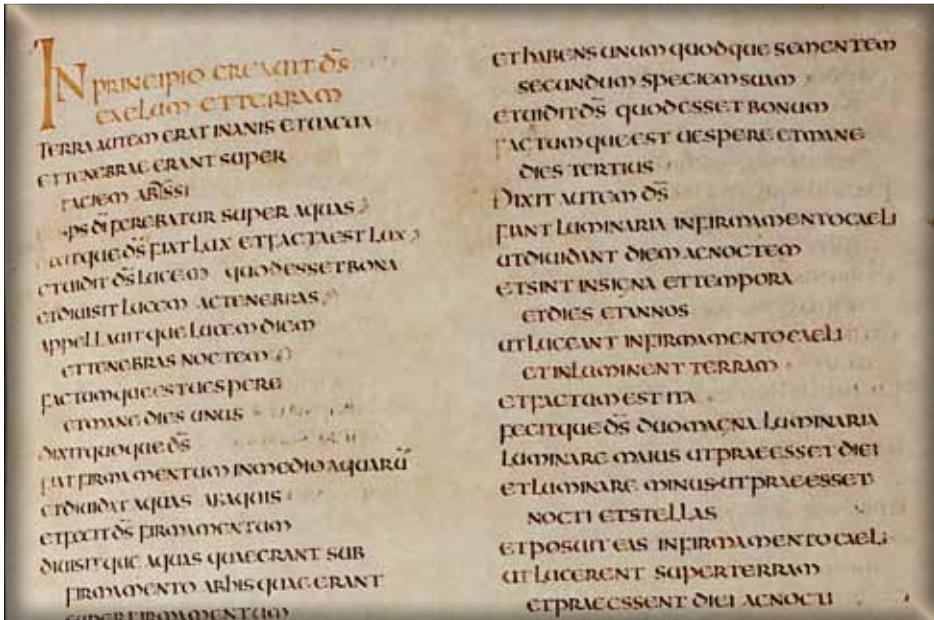 IN PRINCIPIO CREAVIT D̄S
CAELUM ET TERRAM
TERRA AUTEM ERAT INANIS ET UACUA
ET TENEBRAE ERANT SUPER
FACIEM ABISSI
SPS D̄I FEREBATUR SUPER AQUAS
DIXITQUE D̄S FIAT LUX ET FACTA EST LUX
ET UIDIT D̄S LUCEM QUOD ESSET BONA
ET DIUISIT LUCEM AC TENEBRAS
APPELLAUITQUE LUCEM DIEM
ET TENEBRAS NOCTEM
FACTUMQUE EST UESPERE
ET MANE DIES UNUS
DIXIT QUOQUE D̄S
FIAT FIRMAMENTUM IN MEDIO AQUARŪ
ET DIUIDAT AQUAS AB AQUIS
ET FECIT D̄S FIRMAMENTUM
DIUISITQUE AQUAS QUAE ERANT SUB
FIRMAMENTO AB HIS QUAE ERANT
SUPER FIRMAMENTUM
ET HABENS UNUMQUODQUE SEMENTEM
SECUNDUM SPECIEM SUAM
ET UIDIT D̄S QUOD ESSET BONUM
FACTUMQUE EST UESPERE ET MANE
DIES TERTIUS
DIXIT AUTEM D̄S
FIANT LUMINARIA IN FIRMAMENTO CAELI
UT DIUIDANT DIEM AC NOCTEM
ET SINT IN SIGNA ET TEMPORA
ET DIES ET ANNOS
UT LUCEANT IN FIRMAMENTO CAELI
ET INLUMINENT TERRAM
ET FACTUM EST ITA
FECITQUE D̄S DUO MAGNA LUMINARIA
LUMINARE MAIUS UT PRAEESSET DIEI
ET LUMINARE MINUS UT PRAEESSET
NOCTI ET STELLAS
ET POSUIT EAS IN FIRMAMENTO CAELI
UT LUCERENT SUPER TERRAM
ET PRAEESSENT DIEI AC NOCTI